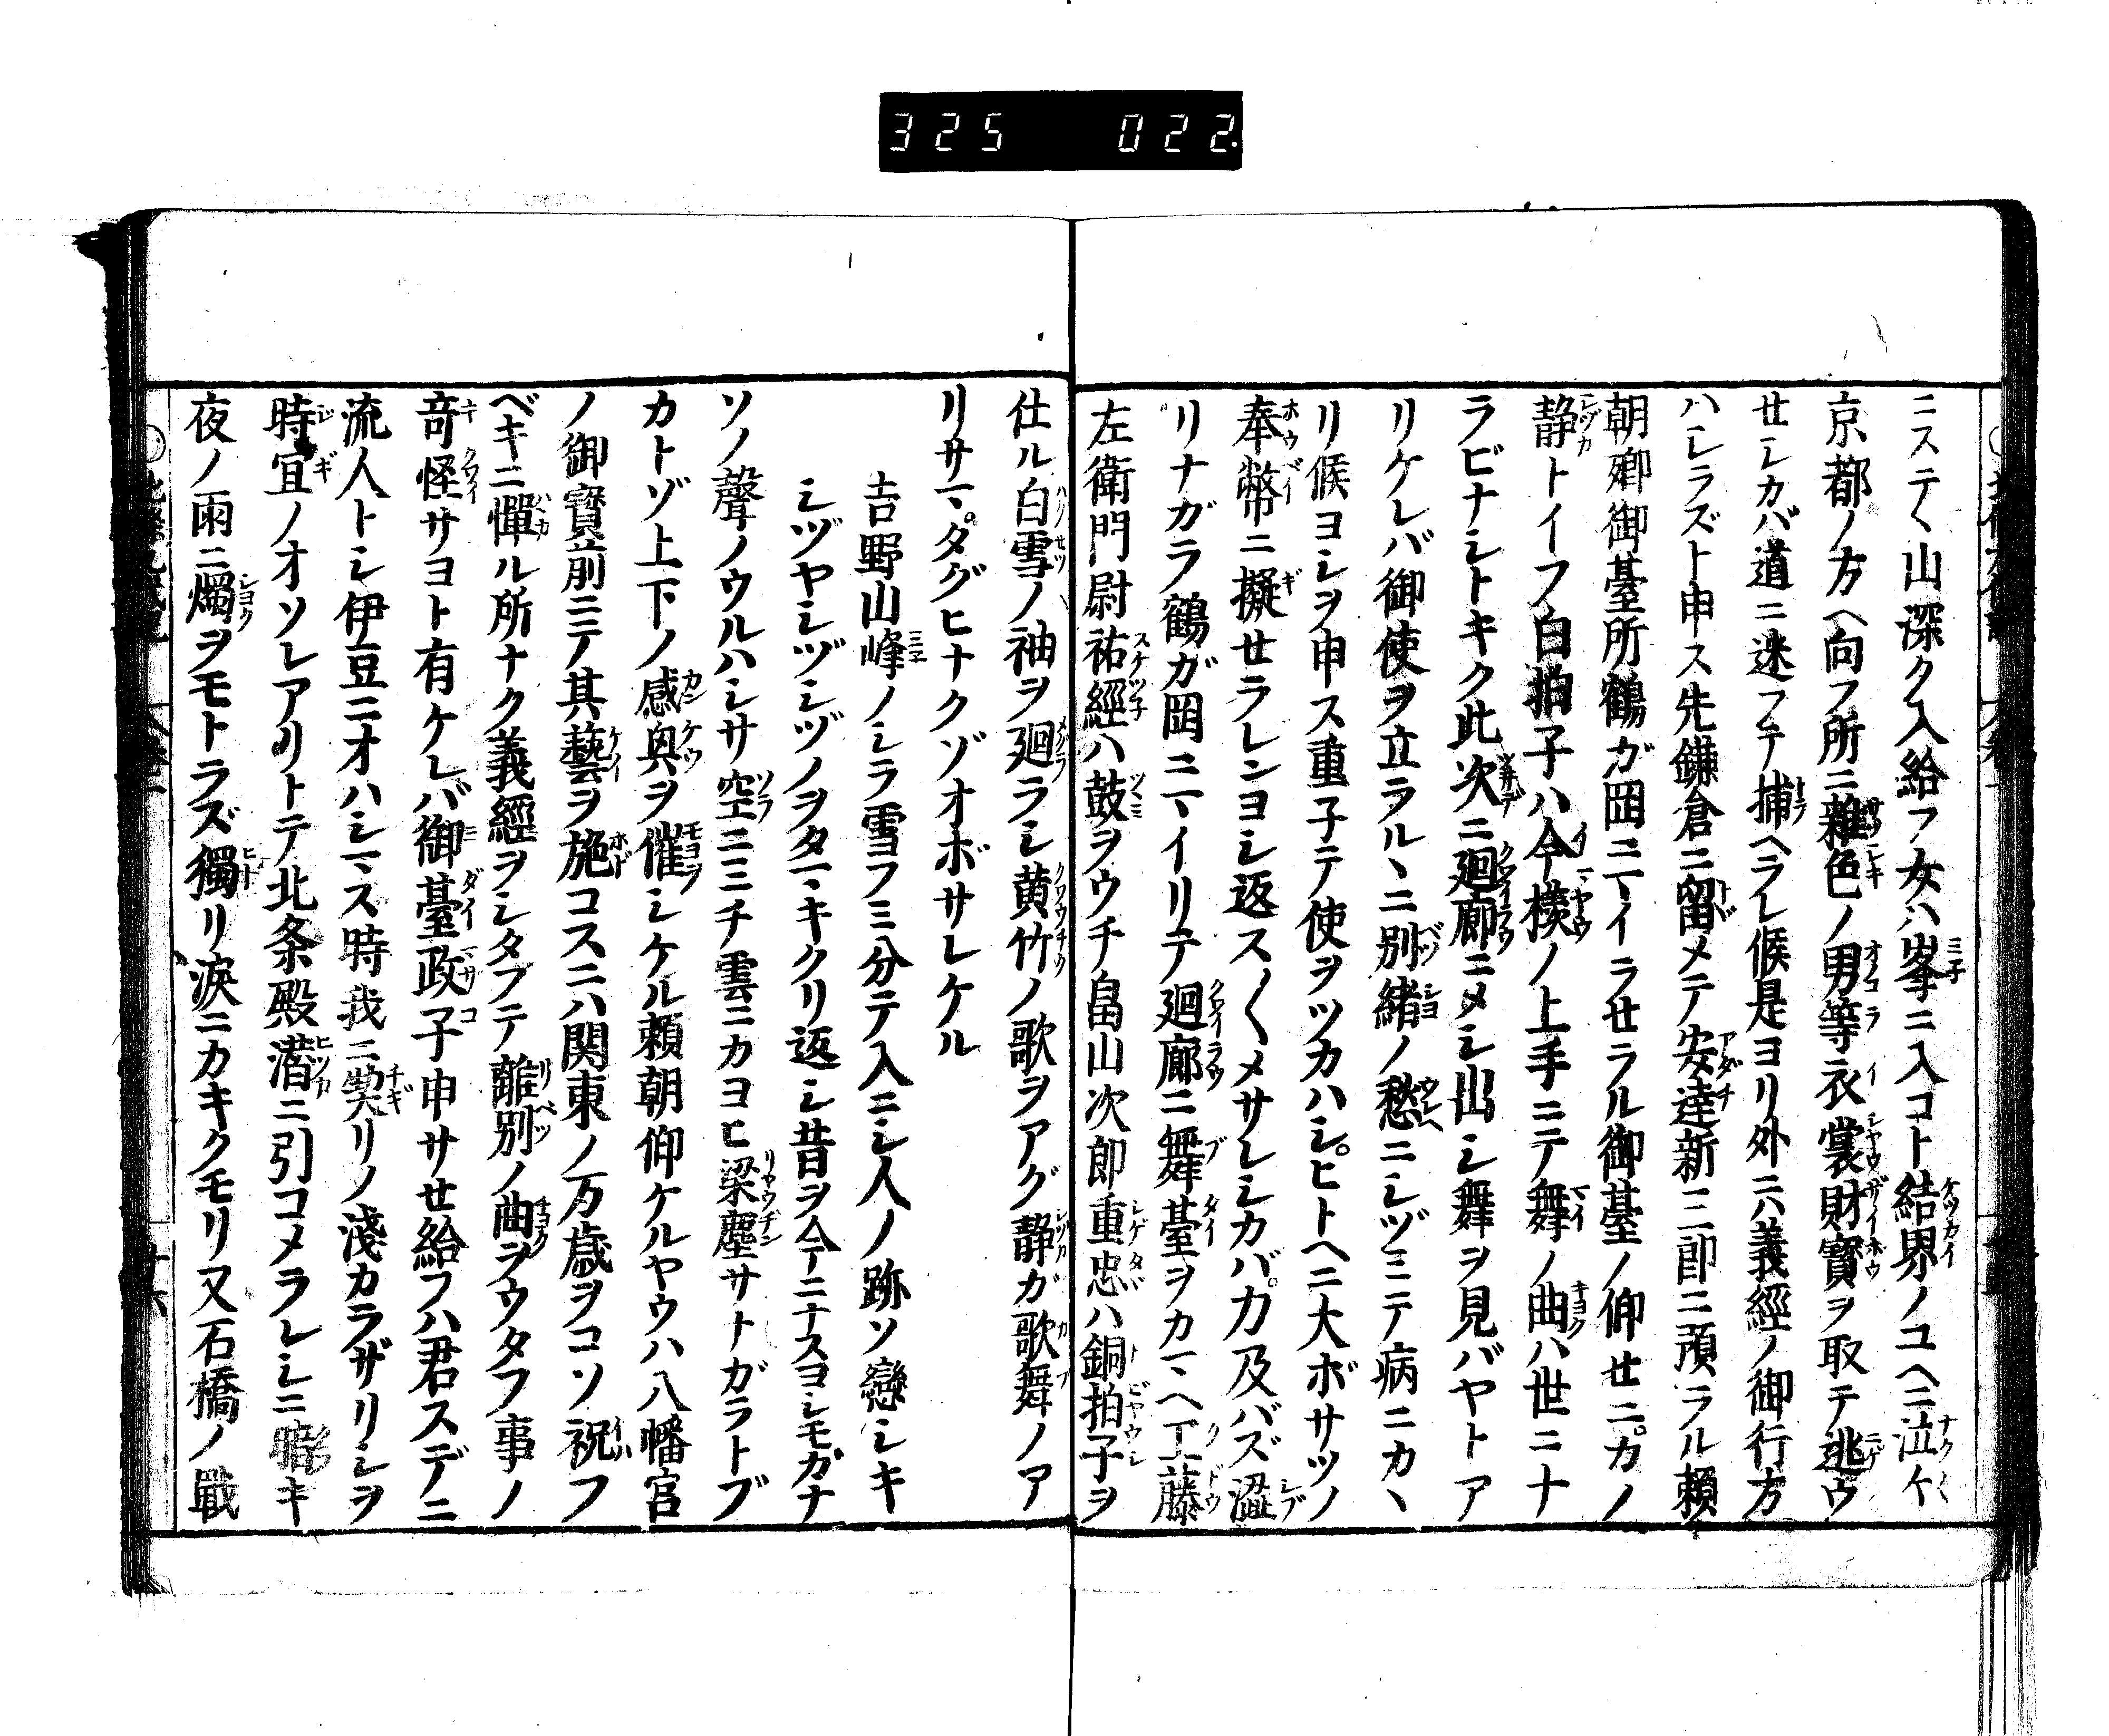 325 022
ニステ〱山深ク入給フ女ハ峯ニ入コト結界ノユヘニ泣ケ
京都ノ方ヘ向フ所ニ雜色ノ男等衣裳財寳ヲ取テ逃ウ
せシカバ道ニ迷フテ捕ヘラレ候是ヨリ外ニハ義經ノ御行方
ハシラズト申ス先鎌倉ニ留メテ安達新三郎ニ預ラル頼
朝卿御臺所鶴ガ岡ニマイラせラル御臺ノ仰せニ。カノ
静トイフ白拍子ハ今様ノ上手ニテ舞ノ曲ハ世ニナ
ラビナシトキク此次ニ廻廊ニメシ出シ舞ヲ見バヤトア
リケレバ御使ヲ立ラルヽニ別緒ノ愁ニシヅミテ病ニカヽ
リ候ヨシヲ申ス重子テ使ヲツカハシ。ヒトヘニ大ボサツノ
奉幣ニ擬せラレンヨシ返ス〱メサレシカバ。力及バズ澁
リナガラ鶴ガ岡ニマイリテ廻廊ニ舞臺ヲカマヘ工藤
左衛門尉祐經ハ鼓ヲウチ畠山次郎重忠ハ銅拍子ヲ
仕ル白雪ノ袖ヲ廻ラシ黄竹ノ歌ヲアグ静ガ歌舞ノア
リサマ。タグヒナクゾオボサレケル
吉野山峰ノシラ雪フミ分テ入ニシ人ノ跡ソ戀シキ
シヅヤシヅシヅノヲタマキクリ返シ昔ヲ今ニナスヨシモガナ
ソノ聲ノウルハシサ空ニミチ雲ニカヨヒ梁塵サトガラトブ
カトゾ上下ノ感興ヲ催シケル頼朝仰ケルヤウハ八幡宮
ノ御寳前ニテ其藝ヲ施コスニハ関東ノ万歳ヲコソ祝フ
ベキニ憚ル所ナク義經ヲシタフテ離別ノ曲ヲウタフ事ノ
竒怪サヨト有ケレバ御臺政子申サせ給フハ君スデニ
流人トシ伊豆ニオハシマス時我ニ契リノ淺カラザリシヲ
時宜ノオソレアリトテ北条殿潜ニ引コメラレシニ キ
夜ノ雨ニ燭ヲモトラズ獨リ涙ニカキクモリ又石橋ノ戰